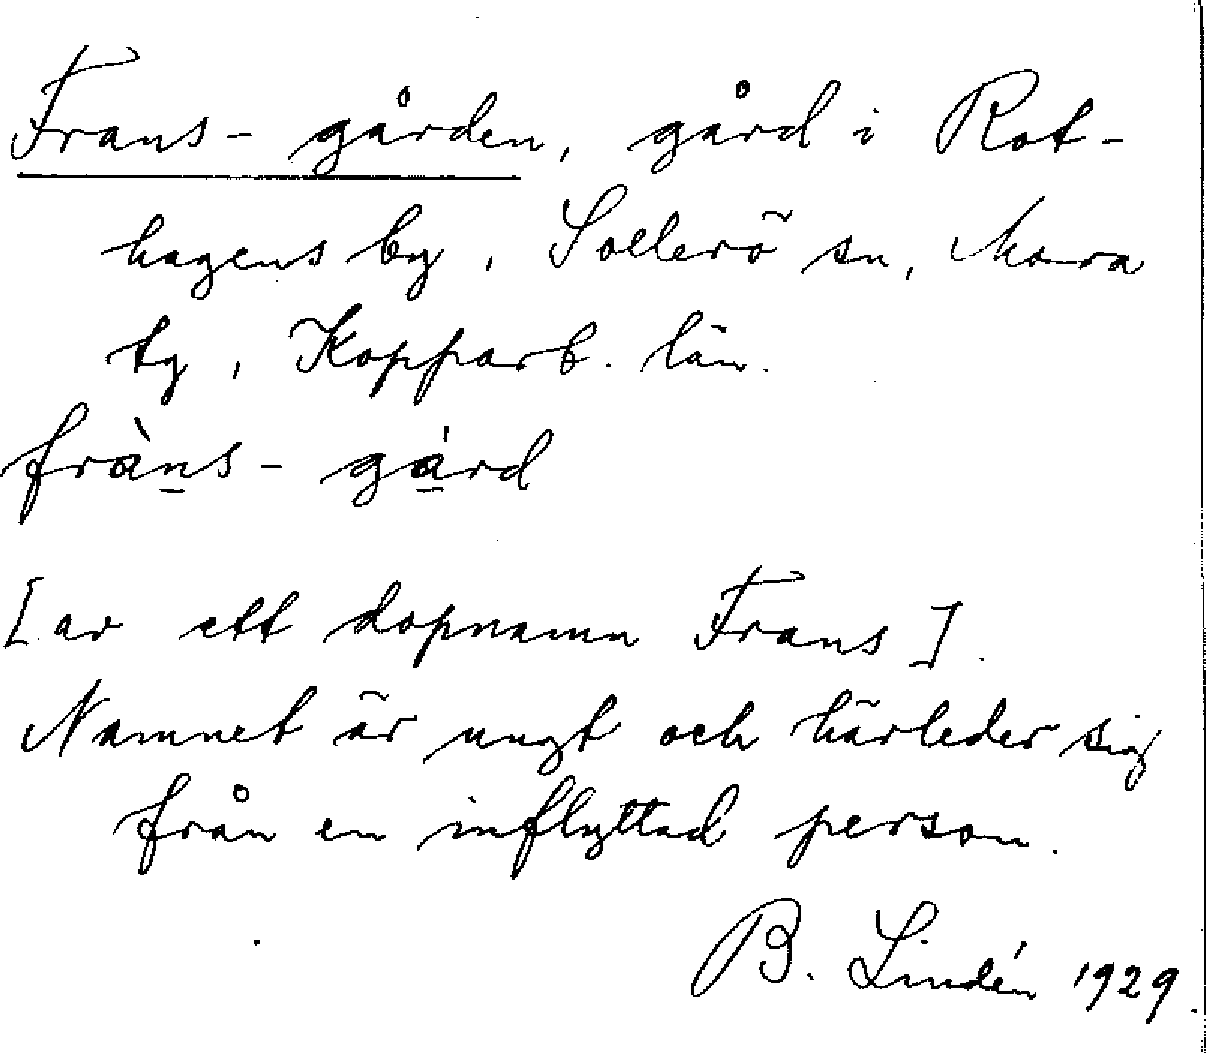 Frans-gården, gård i Rot-
hagens by, Sollerö sn, Mora
tg, Kopparb. län.
fràns-gárd
[av ett dopnamn Frans].
Namnet är ungt och härleder sig
från en inflyttad person.
B. Lindén 1929.